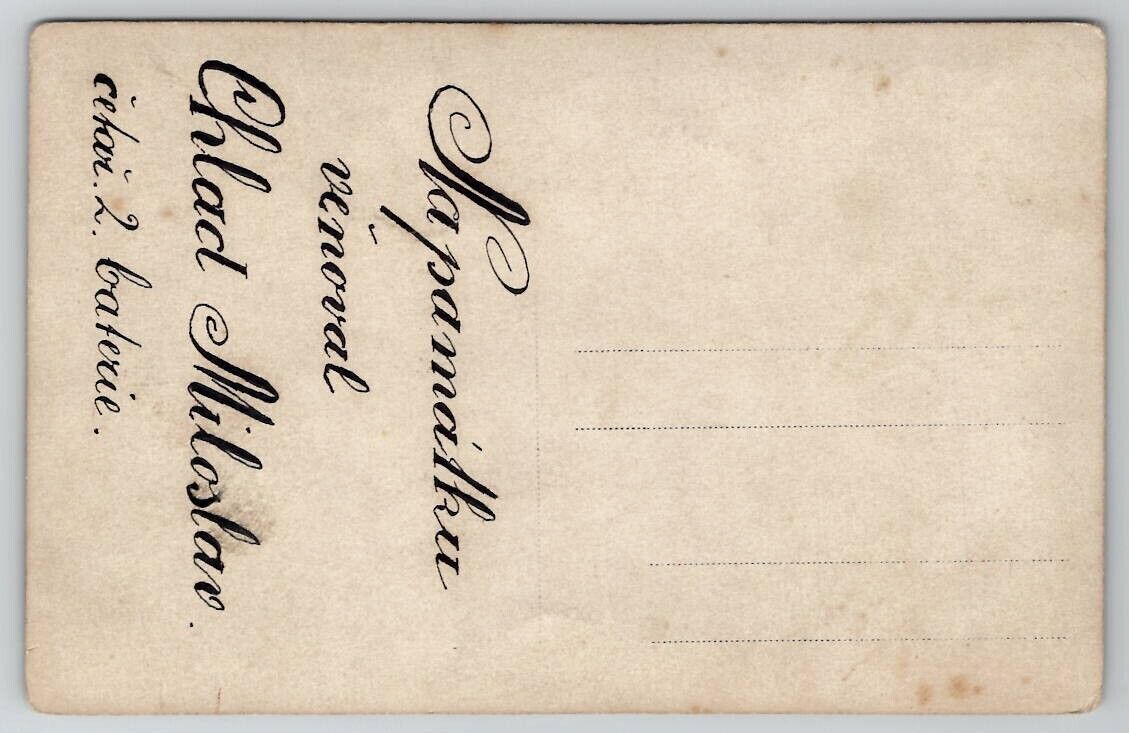 Na památku
věnoval
Chlad Miloslav.
četař. 2. baterie.